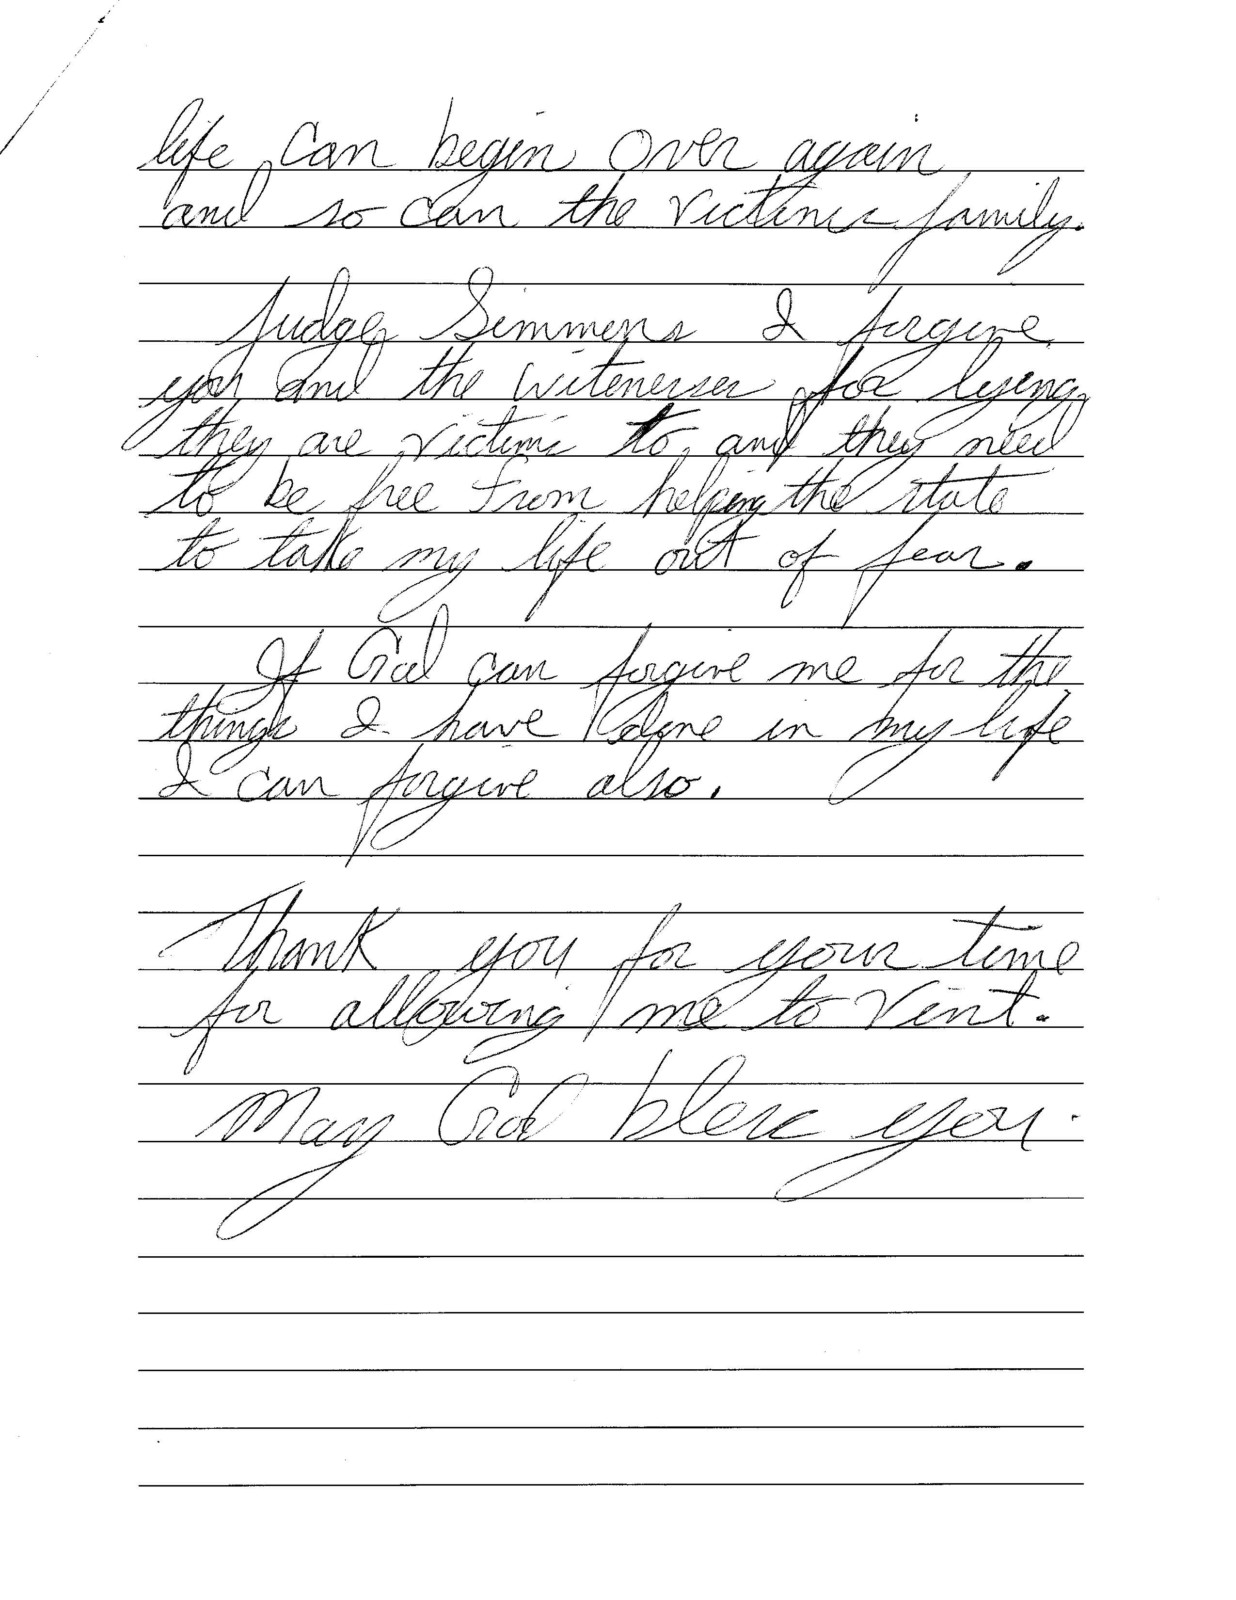 life can begin over again
and so can the victims family.
Judge Simmons I forgive
you and the witenesses for lyeing
they are victims to, and they need
to be free from helping the state
to take my life out of fear.
If God can forgive me for the
things I have done in my life
I can forgive also.
Thank you for your time
for allowing me to vent.
May God bless you.